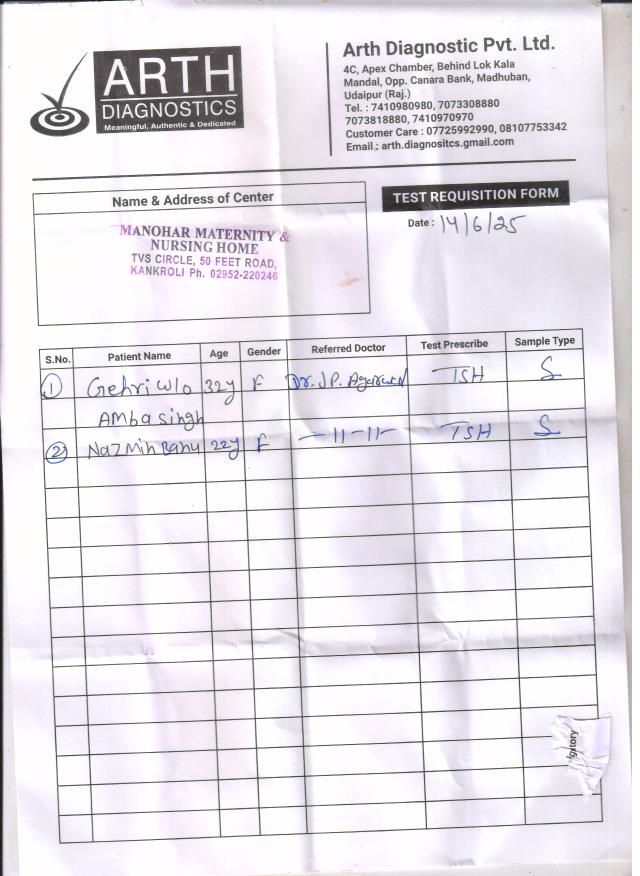 ARTH
DIAGNOSTICS
Meaningful, Authentic & Dedicated
Arth Diagnostic Pvt. Ltd.
4C, Apex Chamber, Behind Lok Kala
Mandal, Opp. Canara Bank, Madhuban,
Udaipur (Raj.)
Tel. : 7410980980, 7073308880
7073818880, 7410970970
Customer Care : 07225992990, 08107753342
Email.: arth.diagnositcs.gmail.com
Name & Address of Center
MANOHAR MATERNITY &
NURSING HOME
TVS CIRCLE, 50 FEET ROAD,
KANKROLI Ph. 02952-220246
TEST REQUISITION FORM
Date : 14/6/25
S.No. Patient Name Age Gender Referred Doctor Test Prescribe Sample Type
1 Gehri w/o 32y F Dr. J P. Agarwal TSH S
Amba singh
2 Nazmin Banu 22y F -11-11- TSH S